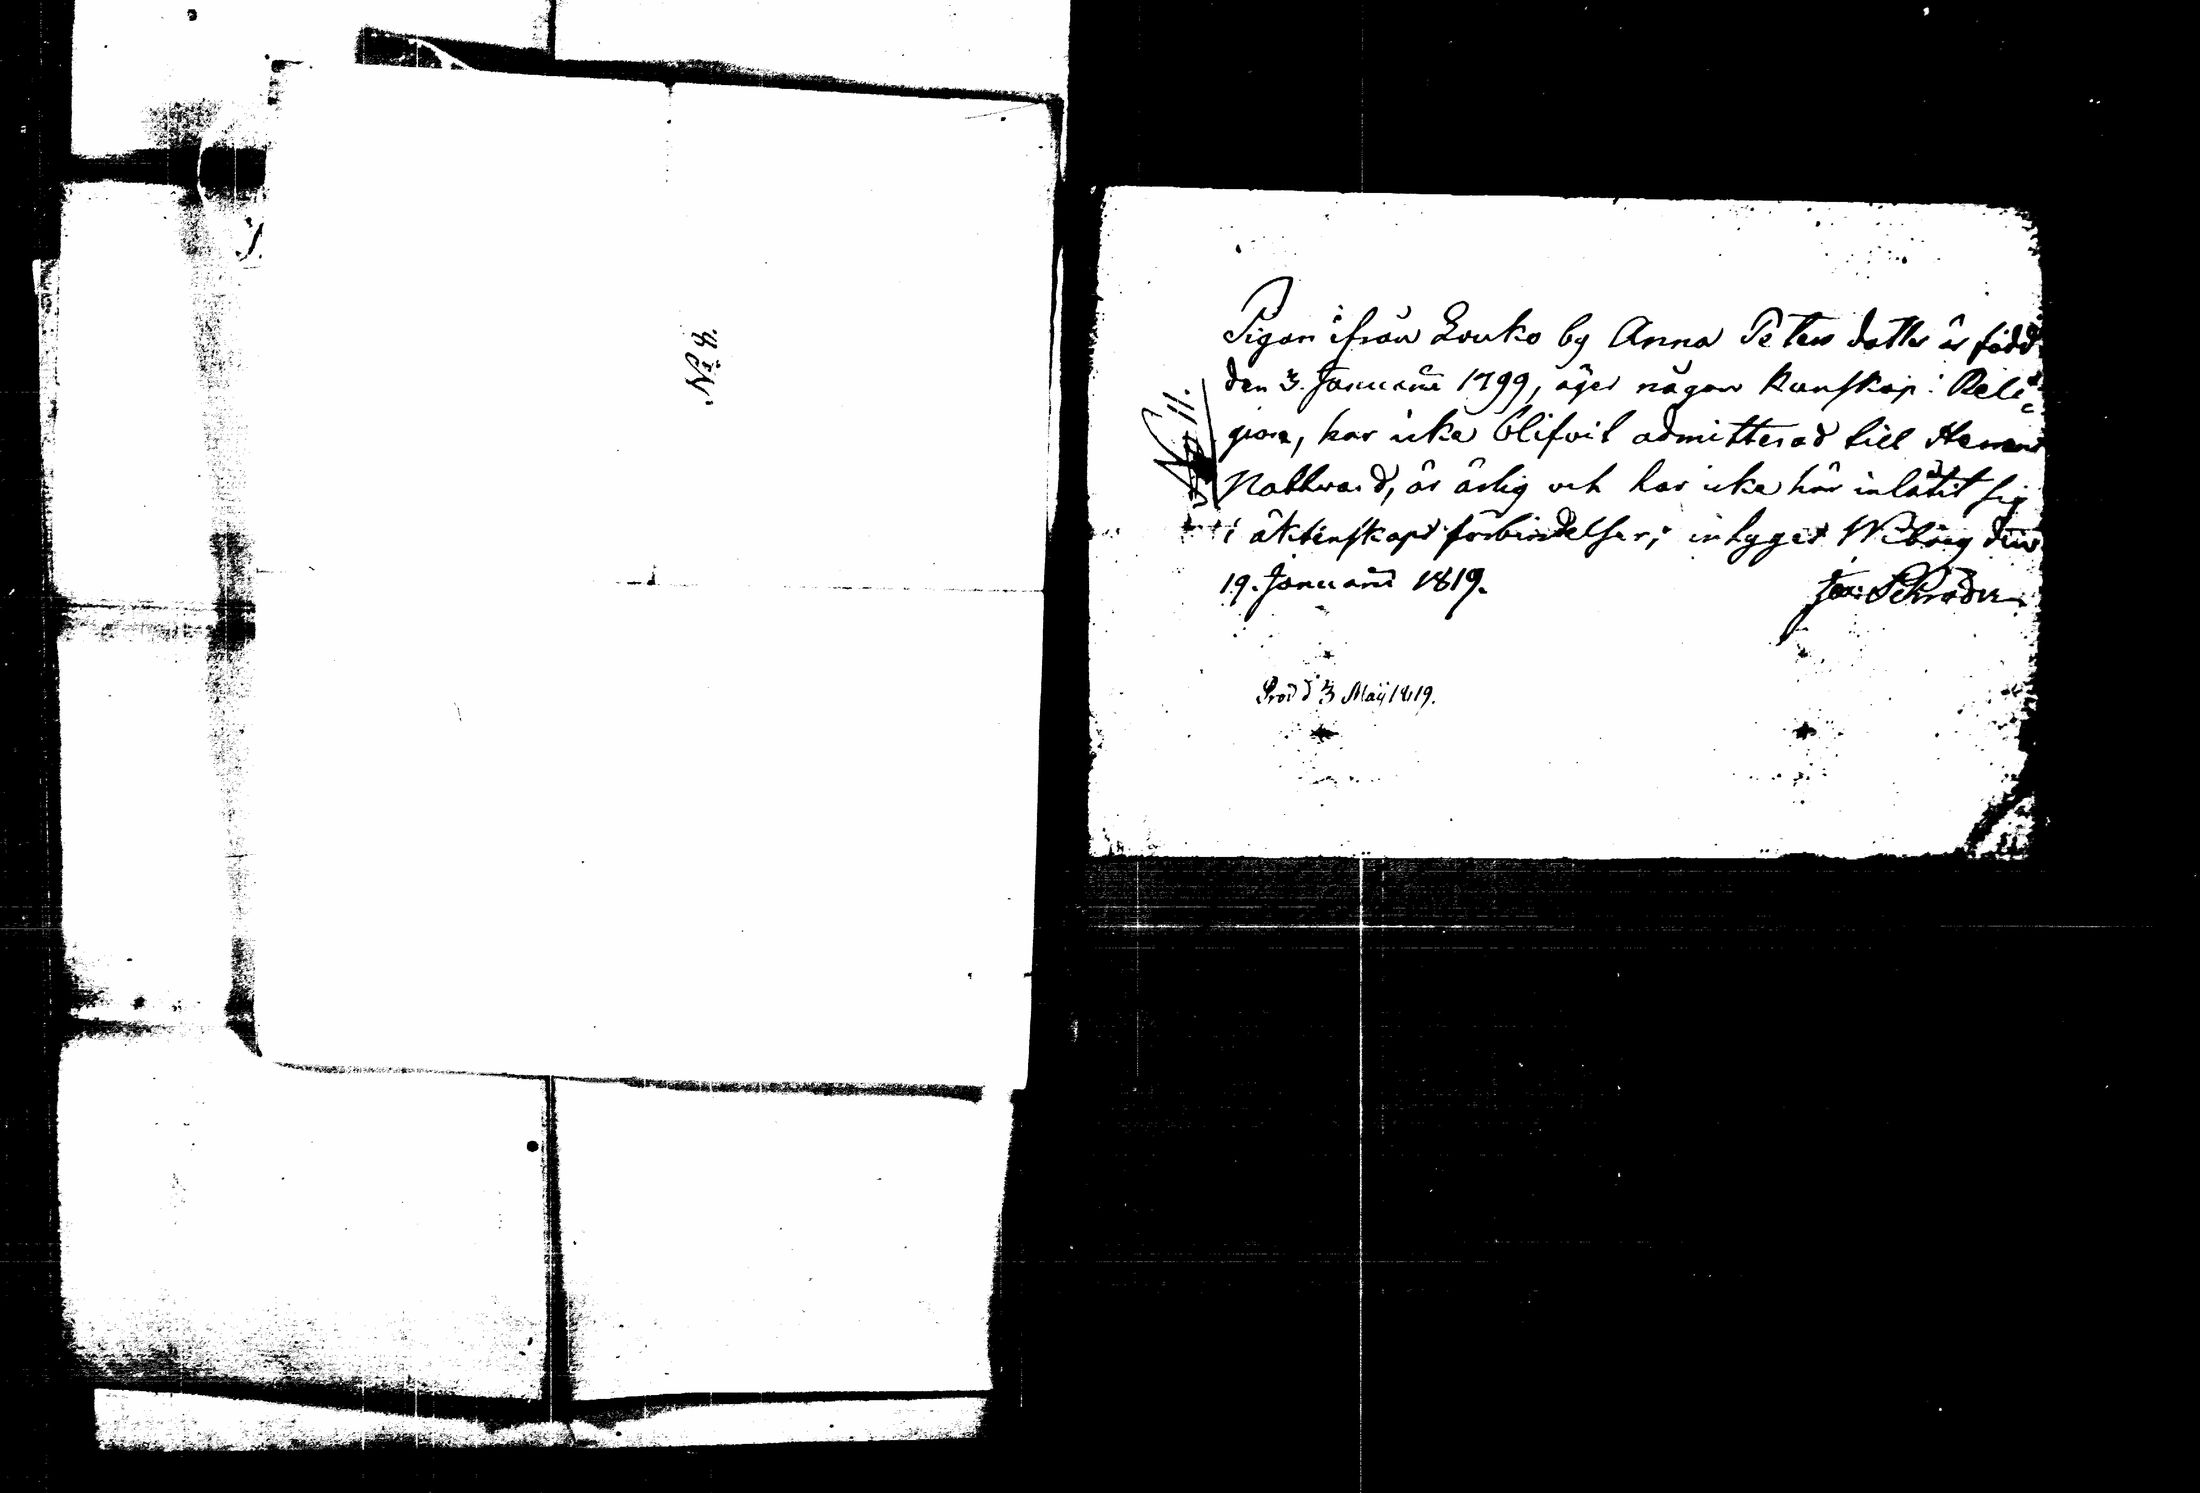 No 4.
No 11.
Pigan ifrån Louko by Anna Peters dotter är född
den 3. Januarii 1799, äger någon kunskap i Reli-
gion, har icke blifvit admitterad till Herrans
Nattward, är ärlig och har icke här inlåtit sig
i äktenskaps förbindelser; intygar Wiborg den
19. Januarii 1819.
Schröder
Prod d 3 Maji 1819.